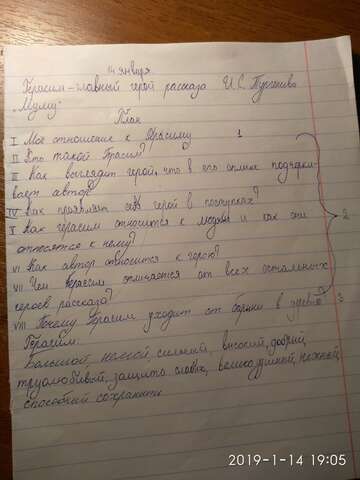 14 января.
Герасим – главный герой рассказа И.С. Тургенева
„Муму"
План
I Моё отношение к Герасиму 1
II Кто такой Герасим
III Как выглядит герой, что в его облике подчёрки-
вает автор?
IV Как проявляет себя герой в поступках?
V Как Герасим относится к людям и как они
относятся к нему? 2
VI Как автор относится к герою?
VII Чем Герасим отличается от всех остальных
героев рассказа?
VIII Почему Герасим уходит от барыни в деревню 3
Герасим:
Большой, немой, сильный, высокий, добрый,
трудолюбивый, защита слабых, великодушный, нежный,
способный сохранить
2019-1-14 19:05